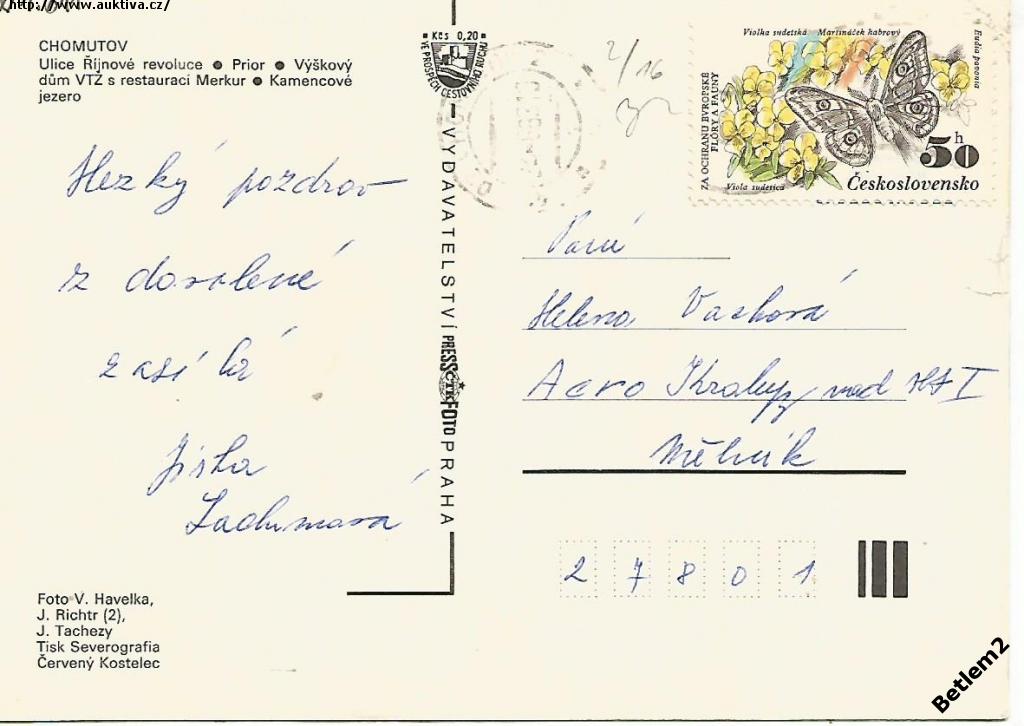 http://www.auktiva.cz/
CHOMUTOV
Ulice Říjnové revoluce ● Prior ● Výškový
dům VTŽ s restaurací Merkur ● Kamencové
jezero
Hezký pozdrav
z dovolené
zasílá
Jirka
Foto V. Havelka,
J. Richtr (2),
J. Tachezy
Tisk Severografia
Červený Kostelec
Kčs 0,20
VE PROSPĚCH CESTOVNÍHO RUCHU
VYDAVATELSTVÍ PRESSFOTO PRAHA
ČTK
2/16
Violka sudetská Martináček habrový
Eudia pavonia
ZA OCHRANU EVROPSKÉ
FLÓRY A FAUNY
50 h
Viola sudetica
Československo
Paní
Helena Vašková
Aero Kralupy nad Vlt I
Mělník
27801
Betlem2